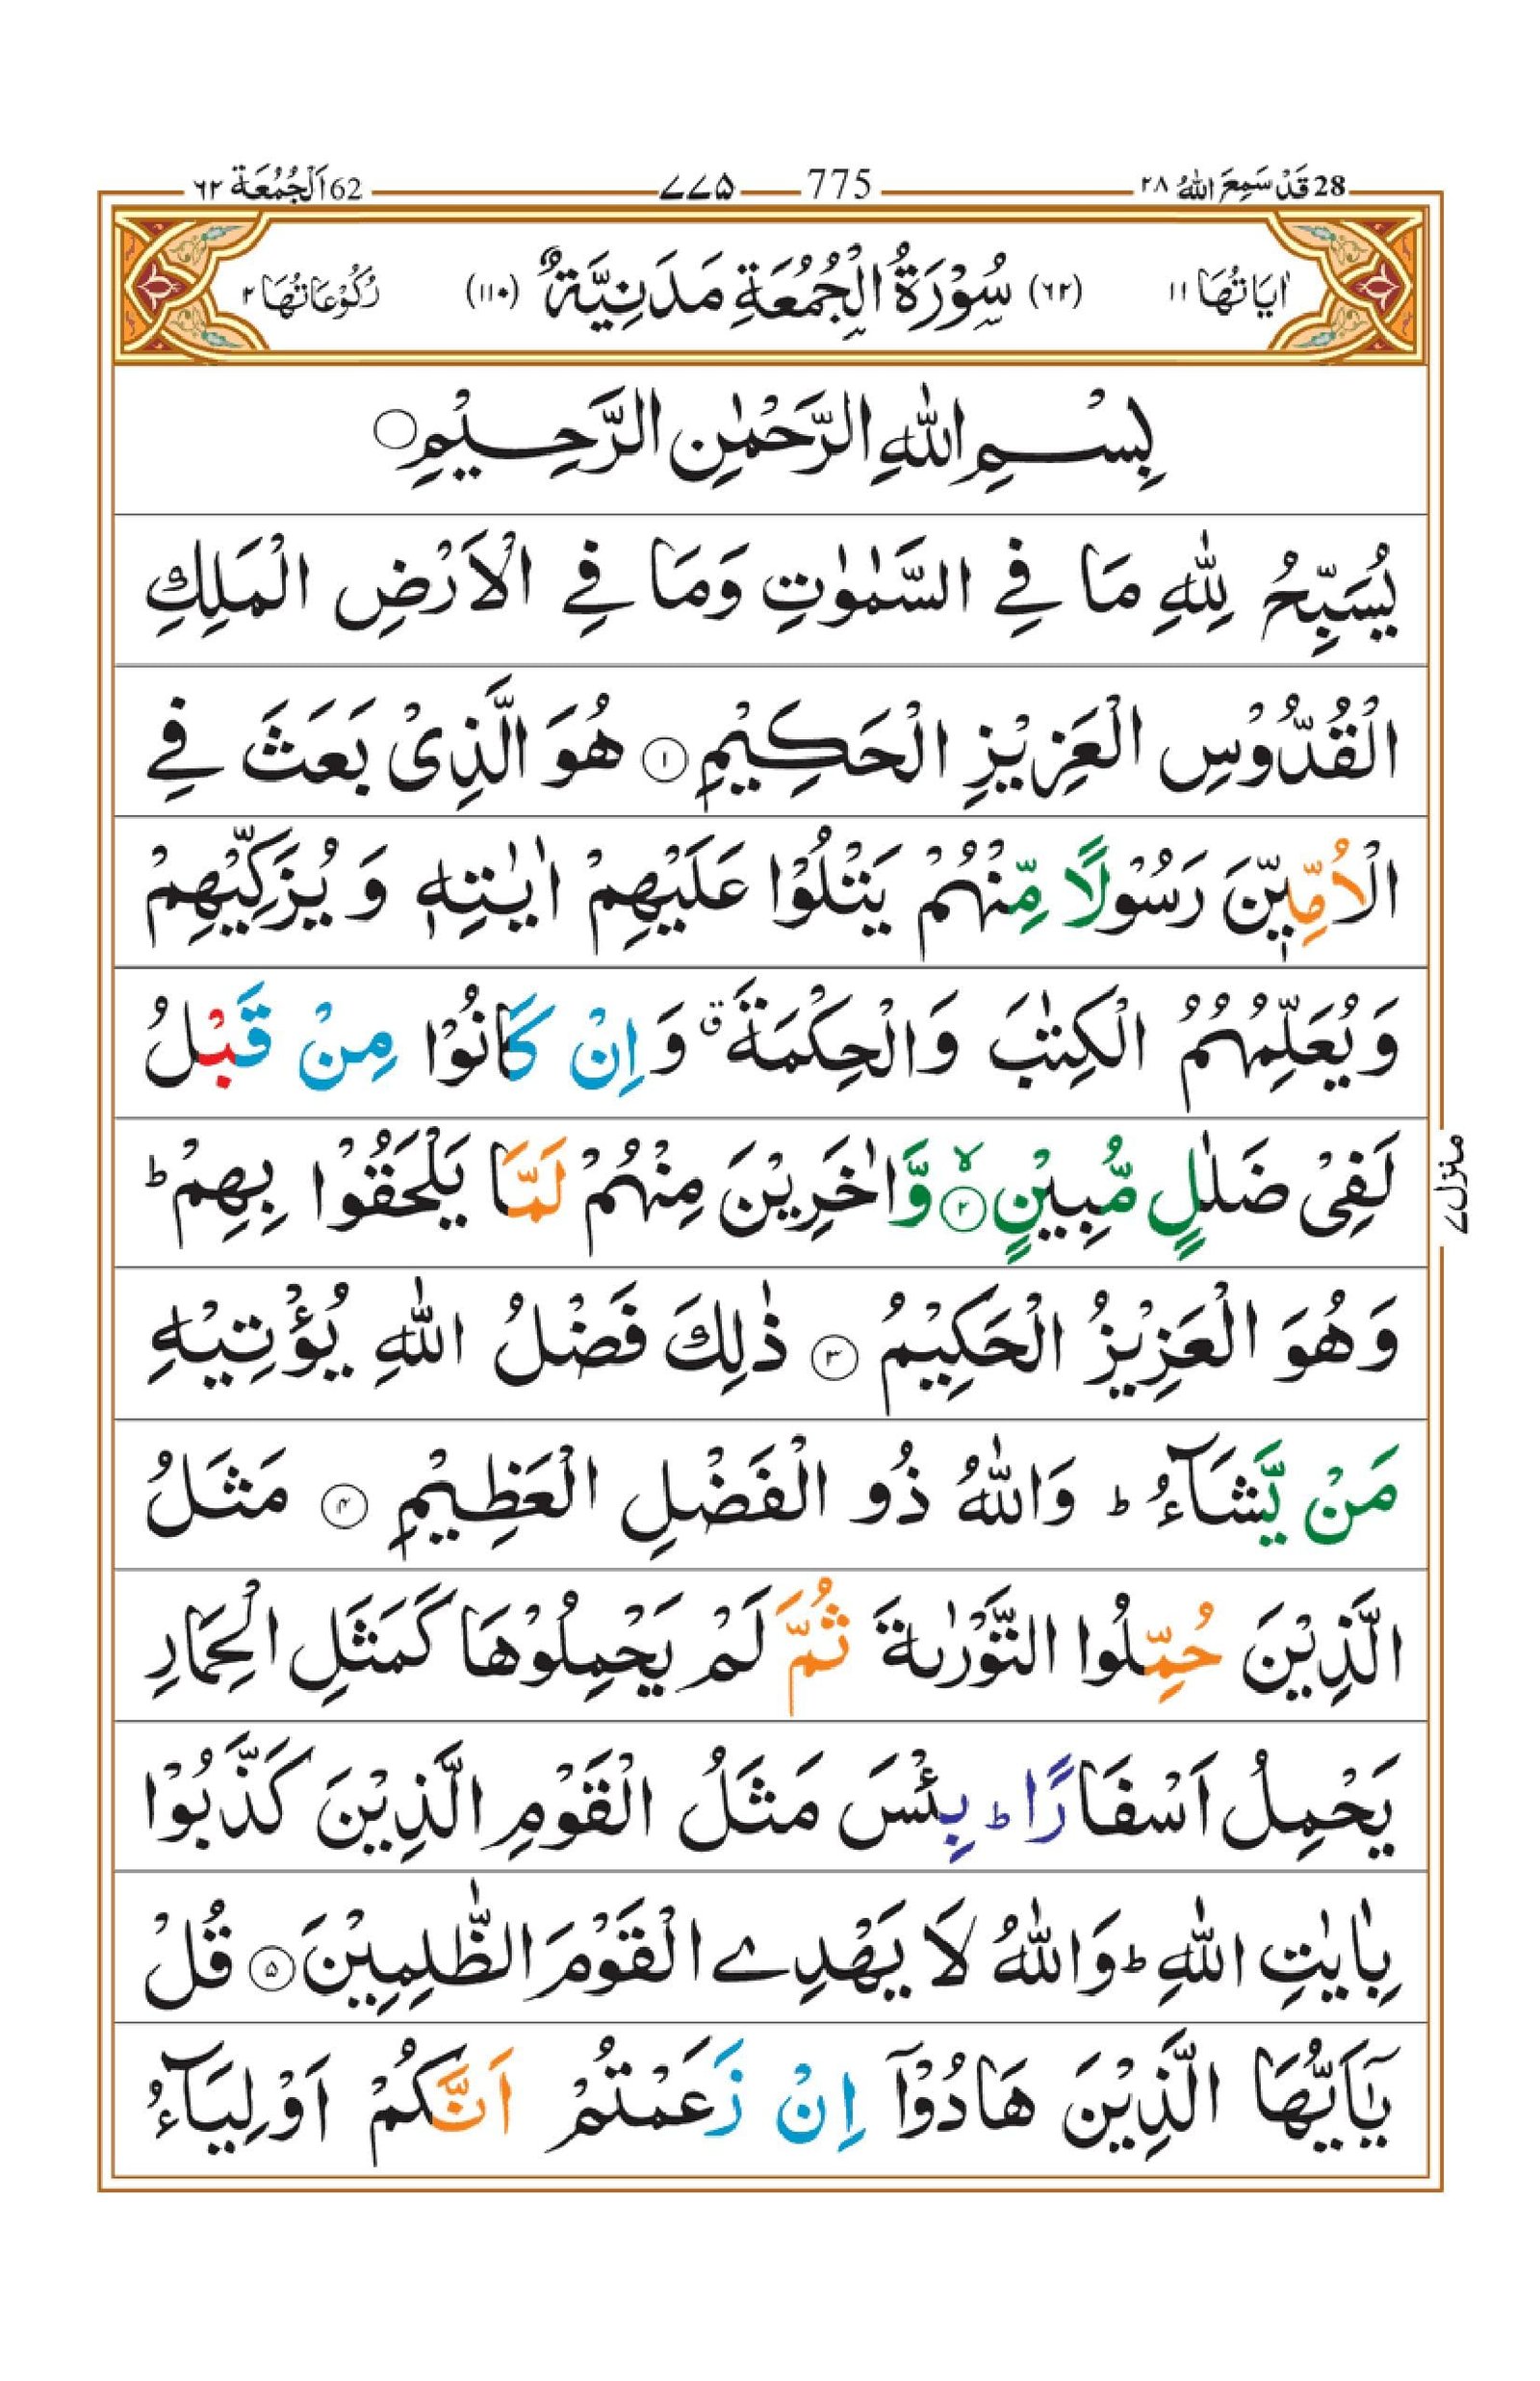 28 قَدْ سَمِعَ اللّٰهُ ٢٨
775 ٧٧٥
62 اَلْجُمُعَة ٦٢
اٰيَاتُهَا ١١
(٦٢) سُوْرَةُ الْجُمُعَةِ مَدَنِيَّةٌ (١١٠)
رُكُوْعَاتُهَا ٢
بِسْمِ اللّٰهِ الرَّحْمٰنِ الرَّحِيْمِ ○
يُسَبِّحُ لِلّٰهِ مَا فِي السَّمٰوٰتِ وَمَا فِي الْاَرْضِ الْمَلِكِ
الْقُدُّوْسِ الْعَزِيْزِ الْحَكِيْمِ ① هُوَ الَّذِيْ بَعَثَ فِي
الْاُمِّيّٖنَ رَسُوْلًا مِّنْهُمْ يَتْلُوْا عَلَيْهِمْ اٰيٰتِهٖ وَ يُزَكِّيْهِمْ
وَيُعَلِّمُهُمُ الْكِتٰبَ وَالْحِكْمَةَ ۗ وَاِنْ كَانُوْا مِنْ قَبْلُ
لَفِيْ ضَلٰلٍ مُّبِيْنٍ ۙ② وَّاٰخَرِيْنَ مِنْهُمْ لَمَّا يَلْحَقُوْا بِهِمْ ؕ
وَهُوَ الْعَزِيْزُ الْحَكِيْمُ ③ ذٰلِكَ فَضْلُ اللّٰهِ يُؤْتِيْهِ
مَنْ يَّشَآءُ ؕ وَاللّٰهُ ذُو الْفَضْلِ الْعَظِيْمِ ④ مَثَلُ
الَّذِيْنَ حُمِّلُوا التَّوْرٰىةَ ثُمَّ لَمْ يَحْمِلُوْهَا كَمَثَلِ الْحِمَارِ
يَحْمِلُ اَسْفَارًا ؕ بِئْسَ مَثَلُ الْقَوْمِ الَّذِيْنَ كَذَّبُوْا
بِاٰيٰتِ اللّٰهِ ؕ وَاللّٰهُ لَا يَهْدِے الْقَوْمَ الظّٰلِمِيْنَ ⑤ قُلْ
يٰٓاَيُّهَا الَّذِيْنَ هَادُوْٓا اِنْ زَعَمْتُمْ اَنَّكُمْ اَوْلِيَآءُ
منزل ٧